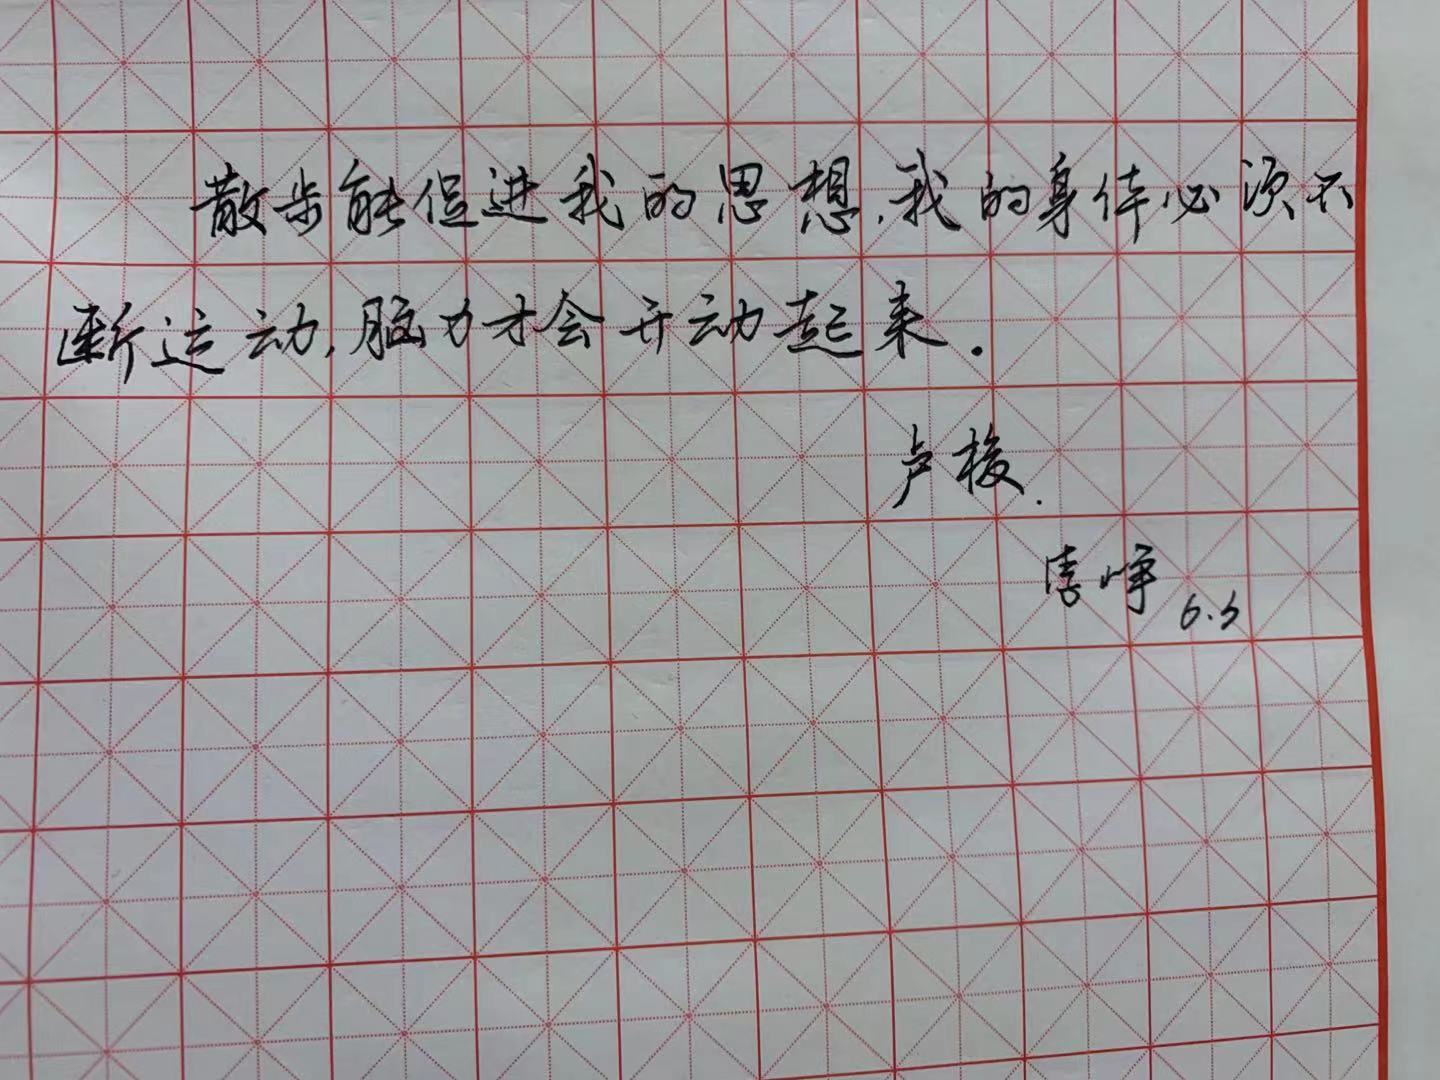 散步能促进我的思想,我的身体必须不
断运动,脑力才会开动起来.
卢梭.
峥 6.3